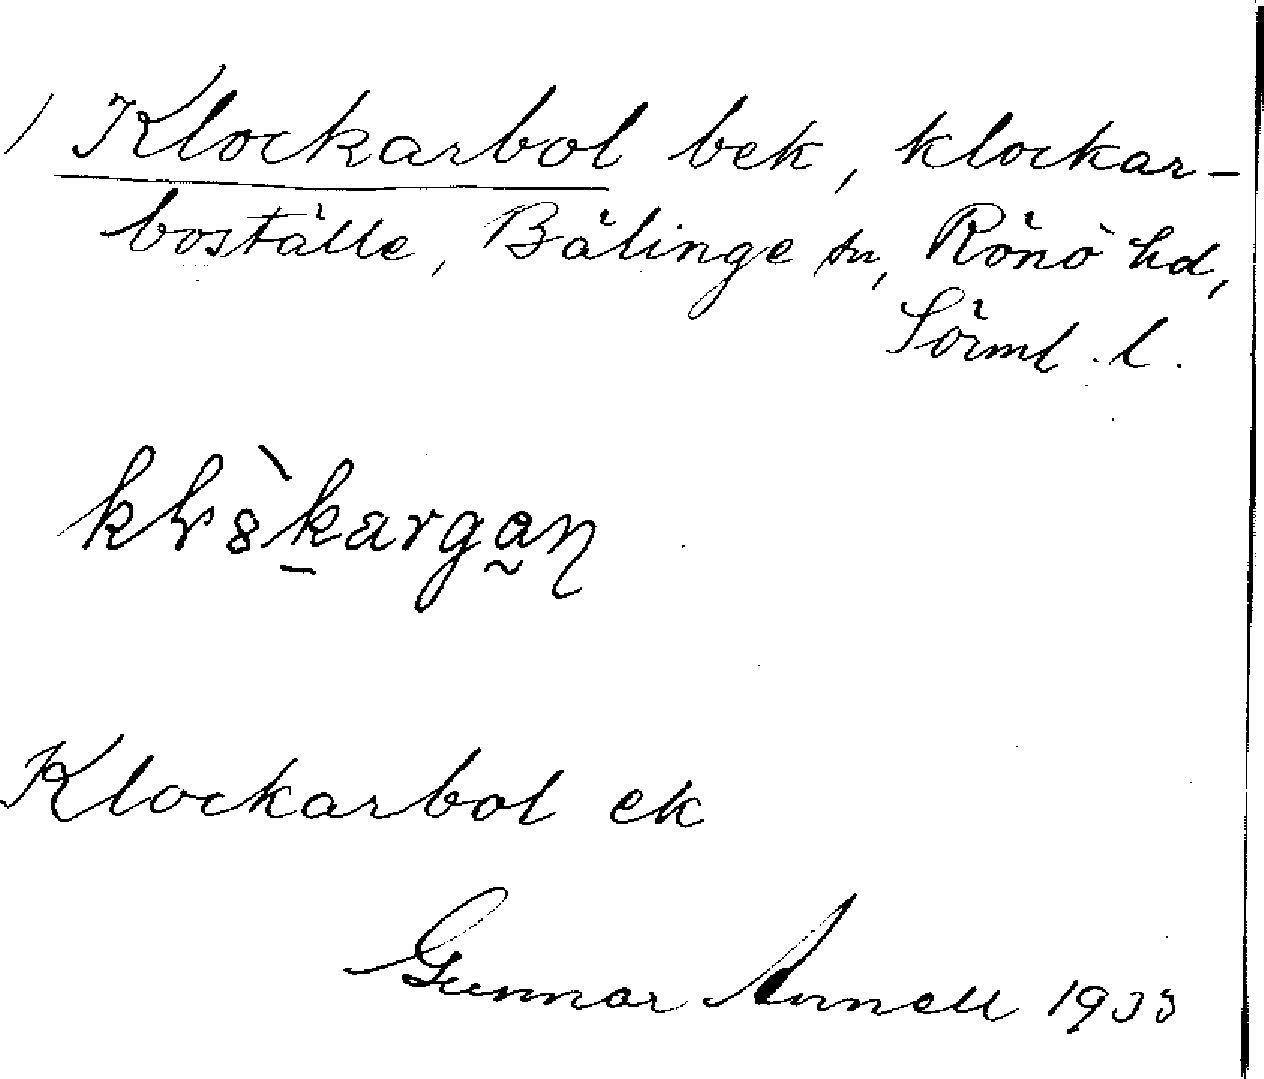 / Klockarbol bek, klockar-
boställe, Bälinge sn, Rönö hd,
Sörml. l.
Klockarbol ek
Gunnar Annell 1933